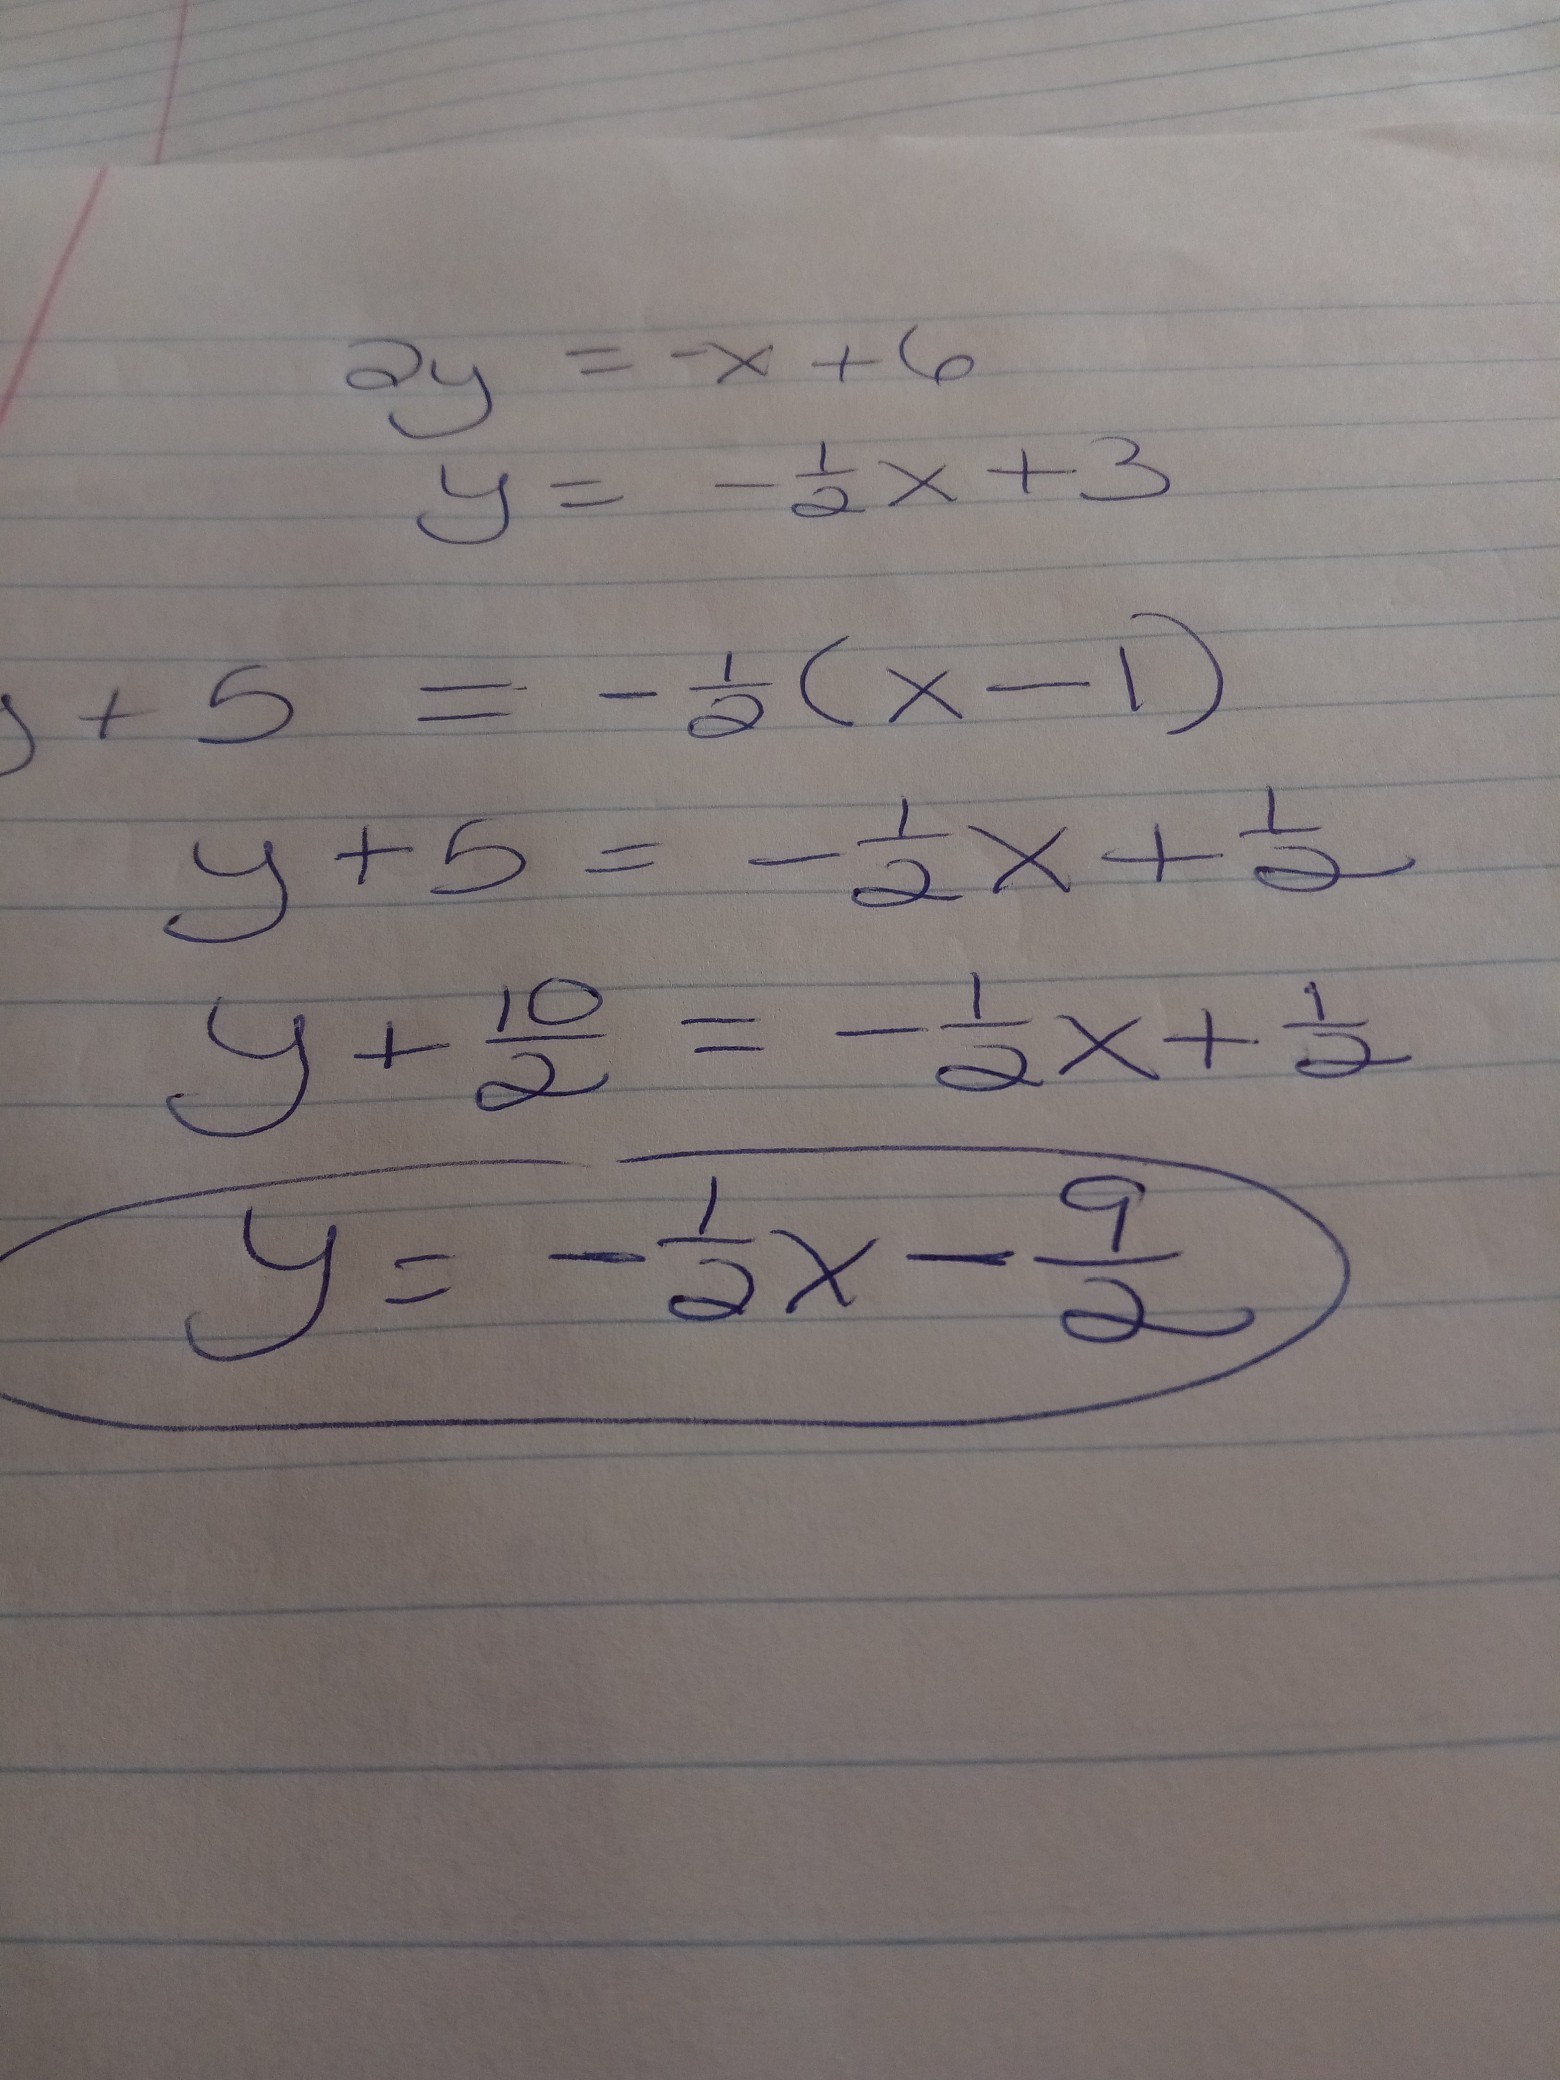 2y = -x + 6
y = -1/2 x + 3
y + 5 = -1/2 (x - 1)
y + 5 = -1/2 x + 1/2
y + 10/2 = -1/2 x + 1/2
y = -1/2 x - 9/2